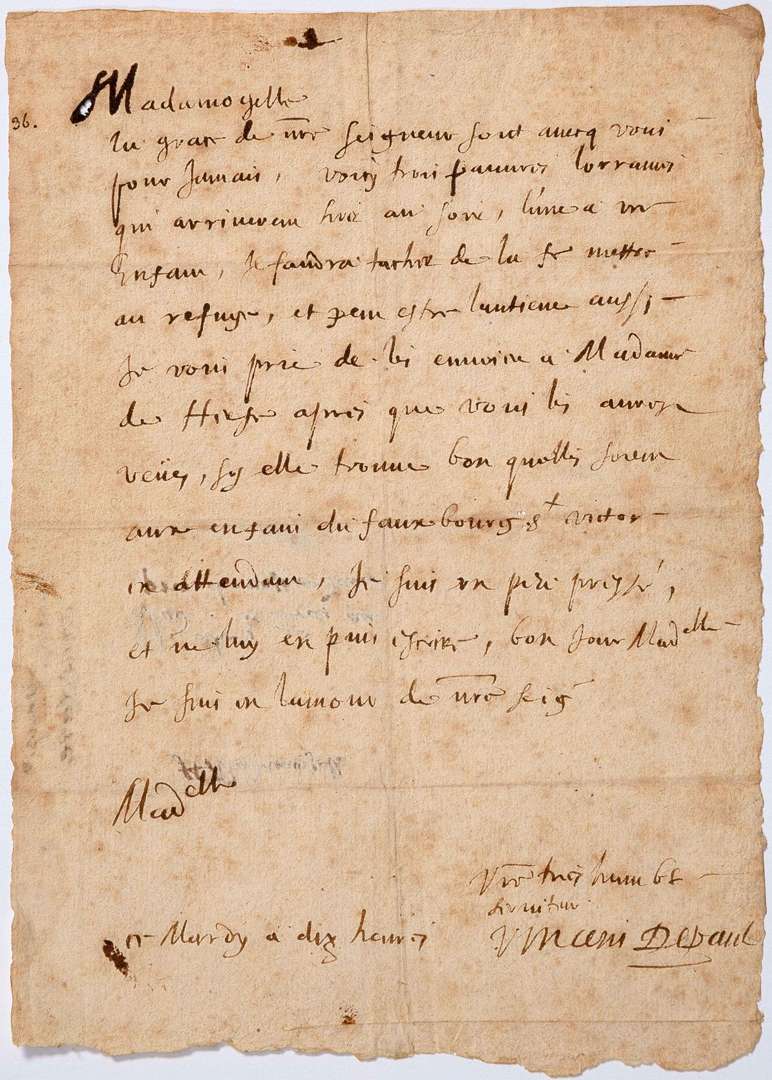 36.
Madamoyselle
la grace de nre Seigneur soit avecq vous
pour Jamais, voicy trois pauvres lorraines
qui arriverent hier au soir, l'une a un
Enfant, Je faudra tacher de la mettre
au refuge, et peut estre lantiene aussi
Je vous prie de les envoier a Madame
de Herse apres que vous les aurez
veües, sy elle trouve bon quelles soient
aux enfans du fauxbourg st victor
en attendant, Je suis un peu pressé,
et ne luy en puis escrire, bon Jour Madelle
Je suis en lamour de nre seigr
Madelle
Vre tres humble
serviteur
Vincent Depaul
ce Mardy a dix heures